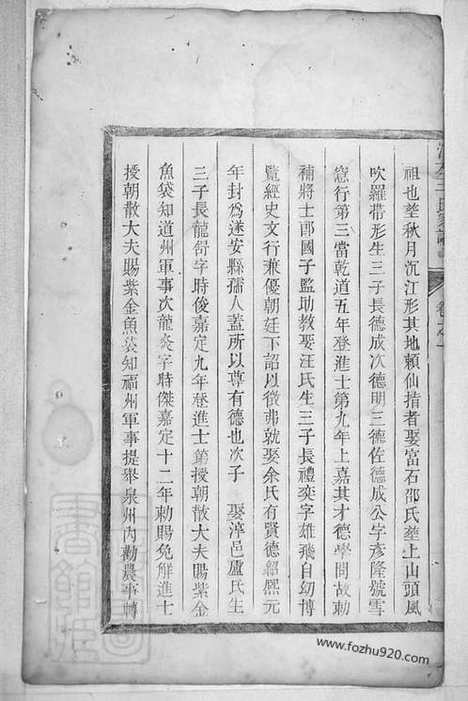 祖也塟秋月沉江形其地賴仙指者娶富石邵氏塟上山頭風
吹羅帶形生三子長德成次德明三德佐德成公字彥隆號雪
窓行第三當乾道五年登進士第九年上嘉其才德學問故勅
補將士郎國子監助教娶汪氏生三子長禮奕字雄飛自幼博
覧經史文行兼優朝廷下詔以徴弗就娶余氏有賢德紹熙元
年封爲遂安縣孺人蓋所以尊有德也次子 娶淳邑盧氏生
三子長龍舒字時俊嘉定九年登進士第授朝散大夫賜紫金
魚袋知道州軍事次龍炎字時傑嘉定十二年勅賜免解進士
授朝散大夫賜紫金魚袋知福州軍事提舉泉州內勸農事轉
卷之一
www.fozhu920.com